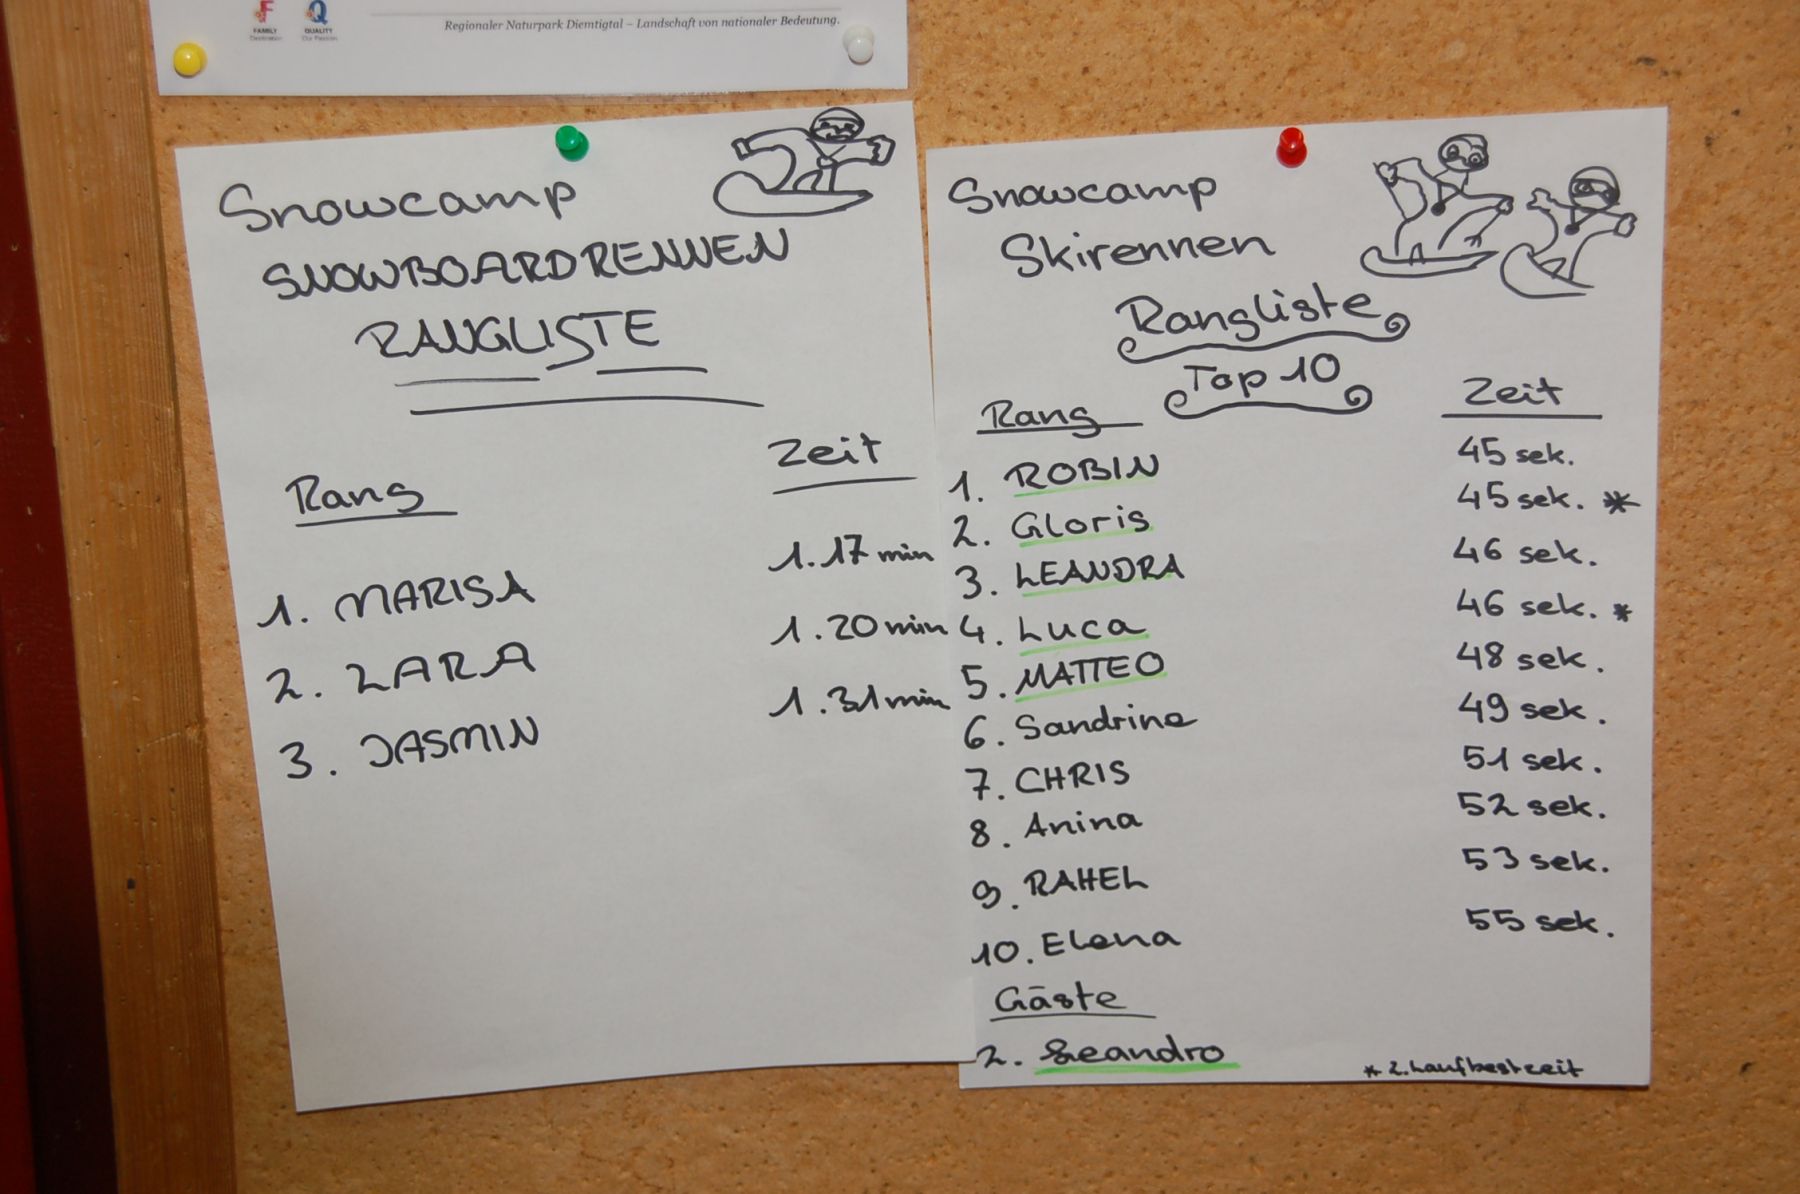 FAMILY
Destination
QUALITY
Our Passion
Regionaler Naturpark Diemtigtal – Landschaft von nationaler Bedeutung.
Snowcamp
SNOWBOARDRENNEN
RANGLISTE
Rang Zeit
1. MARISA 1.17 min
2. LARA 1.20 min
3. JASMIN 1.31 min
Snowcamp
Skirennen
Rangliste
Top 10
Rang Zeit
1. ROBIN 45 sek.
2. Gloris 45 sek. *
3. LEANDRA 46 sek.
4. Luca 46 sek. *
5. MATTEO 48 sek.
6. Sandrine 49 sek.
7. CHRIS 51 sek.
8. Anina 52 sek.
9. RAHEL 53 sek.
10. Elena 55 sek.
Gäste
2. Leandro
* 2. Laufbestzeit